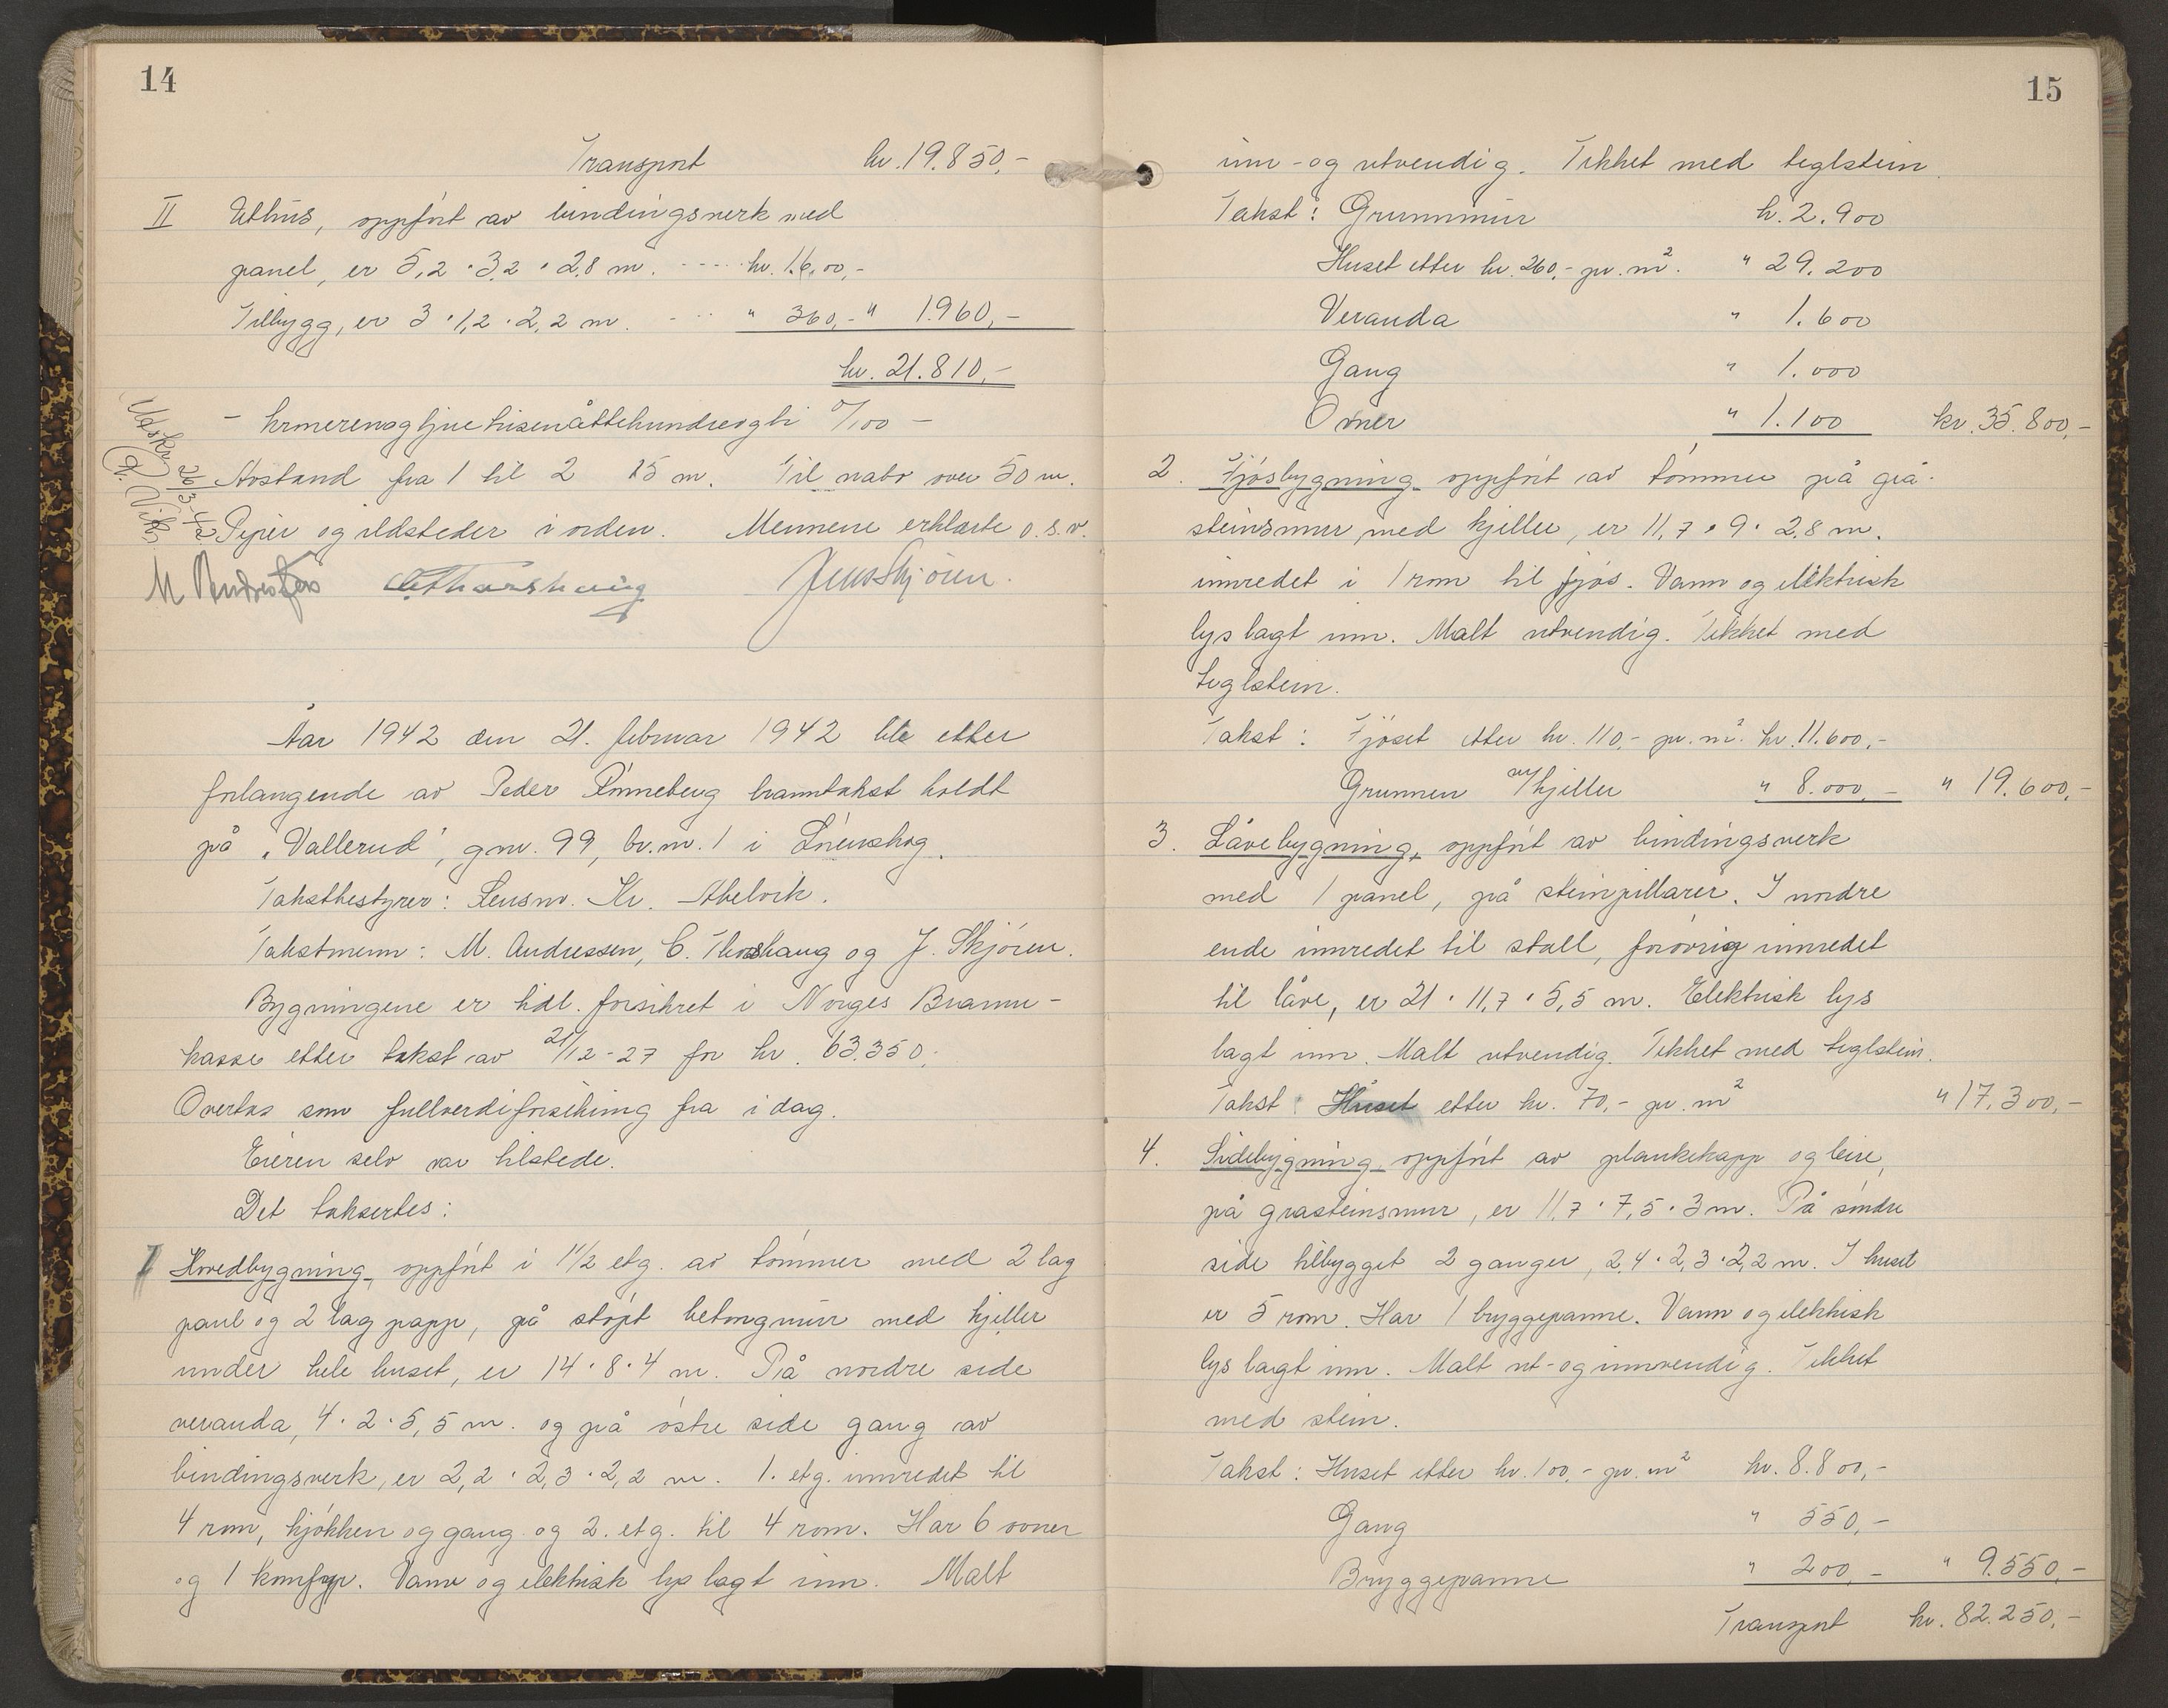 14
Transport kr. 19.850,-
II Uthus, oppført av bindingsverk med
panel, er 5,2 · 3,2 · 2,8 m. - - - - kr. 1.600,-
Tilbygg, er 3 · 1,2 · 2,2 m. - - - " 360,- " 1.960,-
kr. 21.810,-
- kronerenogtjuetusenåttehundreogti 0/00 -
Avstand fra 1 til 2 15 m. Til nabo over 50 m.
Piper og ildsteder i orden. Mennene erklærte o.s.v.
Utskr. 26/3-42
M Andressen C Thorshaug Jens Skjøren.
Aar 1942 den 21. februar 1942 ble etter
forlangende av Peder Rønneberg branntakst holdt
på "Vallerud", gnr. 99, br.nr. 1 i Lørenskog.
Takstbestyrer: Lensm. Kr. Abelvik.
Takstmenn: M. Andressen, C. Thorshaug og J. Skjøren.
Bygningene er tidl. forsikret i Norges Brann-
kasse etter takst av 21/12-27 for kr. 63.350,-
Overtas som fullverdiforsikring fra i dag.
Eieren selv var tilstede.
Det taksertes:
1 Hovedbygning, oppført i 1 1/2 etg. av tømmer med 2 lag
panl og 2 lag papp, på støpt betongmur med kjeller
under hele huset, er 14 · 8 · 4 m. På nordre side
veranda, 4 · 2 · 5,5 m. og på østre side gang av
bindingsverk, er 2,2 · 2,3 · 2,2 m. 1. etg. innredet til
4 rom, kjøkken og gang og 2. etg. til 4 rom. Har 6 ovner
og 1 komfyr. Vann og elektrisk lys lagt inn. Malt
15
inn- og utvendig. Tekket med teglstein.
Takst: Grunnmur kr. 2.900
Huset etter kr. 260,- pr. m². " 29.200
Veranda " 1.600
Gang " 1.000
Ovner " 1.100 kr. 35.800,-
2. Fjøsbygning oppført av tømmer på grå-
steinsmur med kjeller, er 11,7 · 9 · 2,8 m.
innredet i 1 rom til fjøs. Vann og elektrisk
lys lagt inn. Malt utvendig. Tekket med
teglstein.
Takst: Fjøset etter kr. 110,- pr. m². kr. 11.600,-
Grunnen m/kjeller " 8.000,- " 19.600,-
3. Låvebygning, oppført av bindingsverk
med 1 panel, på steinpillarer. I nordre
ende innredet til stall, forøvrig innredet
til låve, er 21 · 11,7 · 5,5 m. Elektrisk lys
lagt inn. Malt utvendig. Tekket med teglstein.
Takst: Huset etter kr. 70,- pr. m² " 17.300,-
4. Sidebygning, oppført av plankekapp og leire,
på grasteinsmur, er 11,7 · 7,5 · 3 m. På søndre
side tilbygget 2 ganger, 2,4 · 2,3 · 2,2 m. I huset
er 5 rom. Har 1 bryggepanne. Vann og elektrisk
lys lagt inn. Malt ut- og innvendig. Tekket
med stein.
Takst: Huset etter kr. 100,- pr. m² kr. 8.800,-
Gang " 550,-
Bryggepanne " 200,- " 9.550,-
Transport kr. 82.250,-